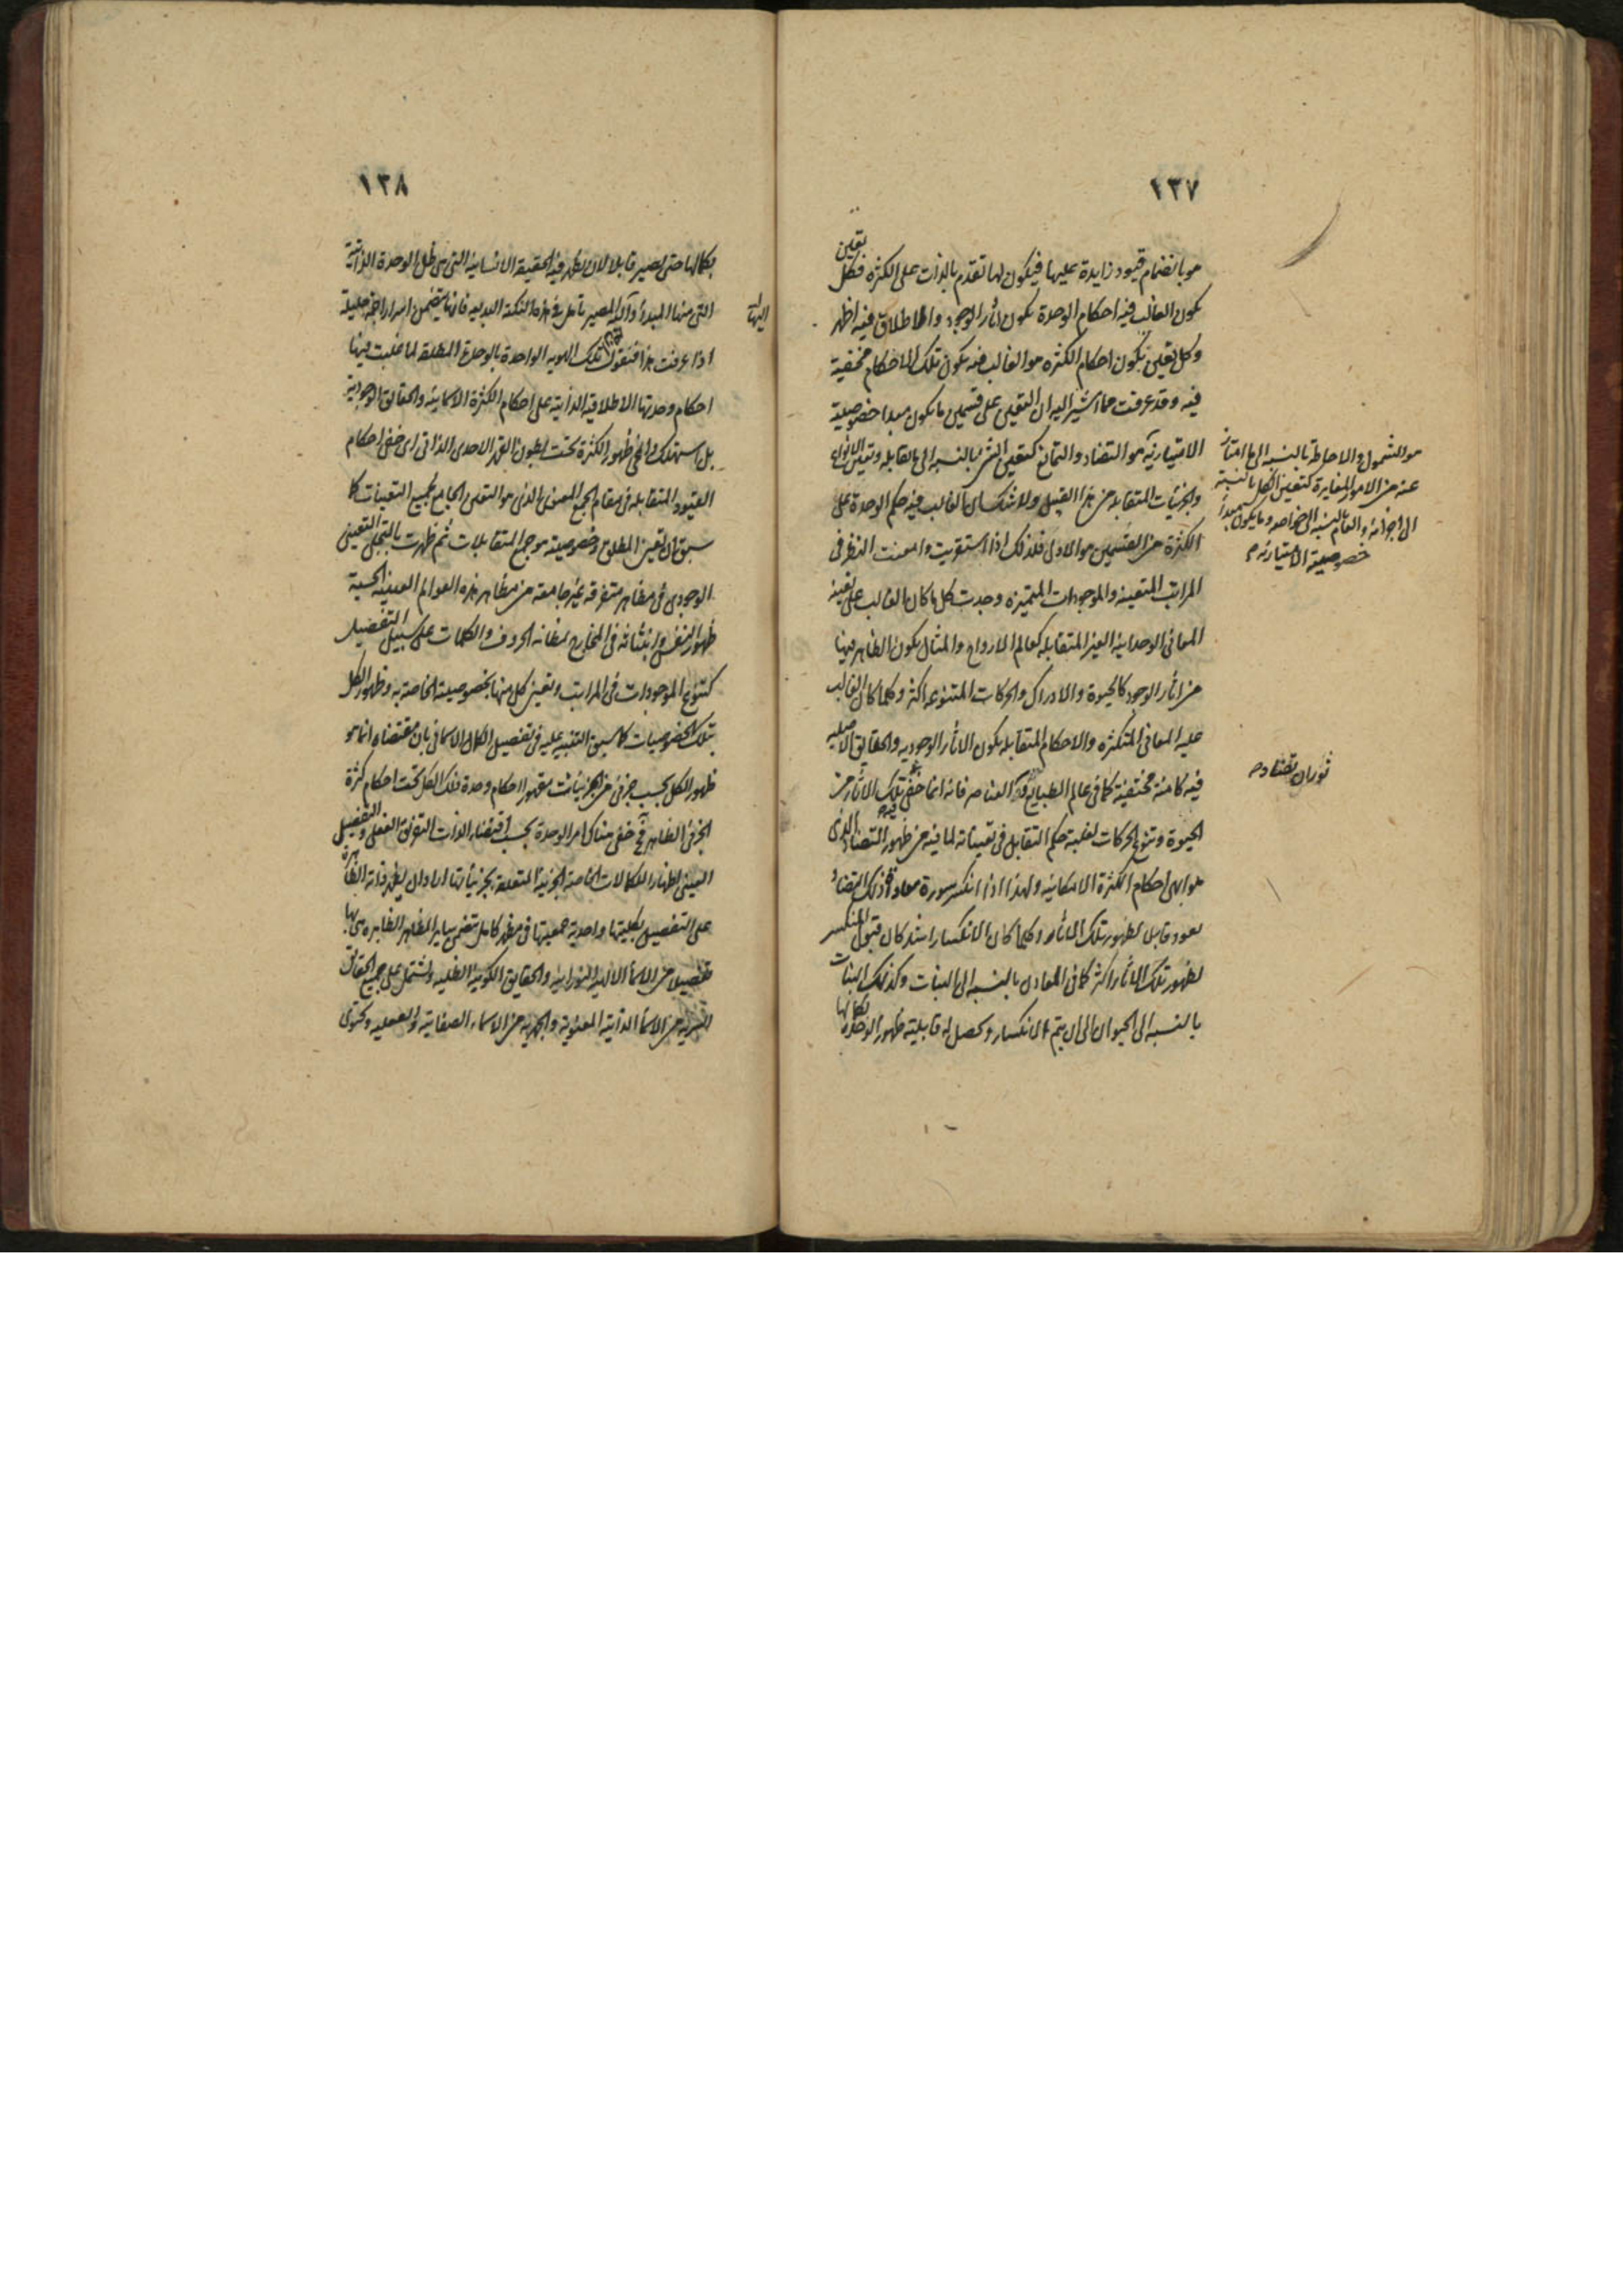 ١٣٧
هو بانضمام قيود زايدة عليها فيكون لها تقدم بالذات على الكثرة فكل تعين
يكون الغالب فيه احكام الوحدة يكون اثار الوجود والاطلاق فيه اظهر
وكل تعين يكون احكام الكثرة هو الغالب فيه يكون تلك الاحكام مختفية
فيه وقد عرفت مما اشير اليه ان التعين على قسمين ما يكون مبدا خصوصية
الامتيازية هو التضاد والتمانع كتعين الشئ بالنسبه الى ما يقابله وتعين الانواع
والجزئيات المتقابله من هذا القبيل ولا شك ان الغالب فيه حكم الوحدة على
الكثرة من القسمين هو الاول فلذلك اذا استقريت وامعنت النظر فى
المراتب المتعينه والموجودات المتميزه وجدت كل ما كان الغالب على تعينه
المعانى الوحدانية الغير المتقابله كعالم الارواح والمثال يكون الظاهر فيها
من اثار الوجود كالحيوة والادراك والحركات المتنوعه اكثر وكلما كان الغالب
عليه المعانى المتكثره والاحكام المتقابله يكون الاثار الوجوديه والحقايق الاصليه
فيه كامنة مختفية كما فى عالم الطبايع العناصر فانه انما خفى فيه تلك الاثار من
الحيوة وتنوع الحركات لغلبة حكم التقابل فى تعيناته لما فيه من ظهور التضاد الذى
هو ابهى احكام الكثرة الامكانيه ولهذا اذا انكسر سورة ذلك التضاد
يعود قابل لظهور تلك الاثار وكلما كان الانكسار اشد كان قبول المنكسر
لظهور تلك الاثار اكثر كما فى المعادن بالنسبه الى النبات وكذلك النبات
بالنسبه الى الحيوان الى ان يتم الانكسار وحصل له قابلية ظهور الوحدة بكمالها
هو الشمول والاحاطة بالنسبه الى ما امتاز
عنه من الامور المغايرة كتعين الكل بالنسبة
الى اجزائه والعام بالنسبه الى خواصه وما يكون مبدا
خصوصية الامتيازيه
ثوران تضاده
١٣٨
بكمالها حتى يصير قابلا لان يظهر فيه الحقيقة الانسانية التى هى ظل الوحدة الذاتية
التى منها المبدأ واليها المصير تامل فى هذه النكتة البديعه فانها يتضمن اسرارا جمة جليلة
اليها
اذا عرفت هذا فنقول تلك الهويه الواحدة بالوحدة المطلقة لما غلبت فيها
احكام وحدتها الاطلاقية الذاتية على احكام الكثرة الاسمائية والحقايق الوجودية
بل استهلك وانمحى ظهور الكثرة تحت بطون القهر الاحدى الذاتى اى خفى احكام
القيود المتقابله فى مقام الجمع المعنوى الذى هو التعين الجامع لجميع التعينات كما
سبق ان تعين المطلق وخصوصيته هو جمع المتقابلات ثم ظهرت بالتجلى التعينى
الوجودى فى مظاهر متفرقه غير جامعة من مظاهر هذه العوالم العينية الحسية
ظهور النفس وانبثاثه فى المخارج لمفاته الحروف والكلمات على سبيل التفصيل
كتنوع الموجودات فى المراتب وتعين كل منها بخصوصيته الخاصة به وظهور الكل
بتلك الخصوصيات كما سبق التنبيه عليه فى تفصيل الكمال الاسمائى بان مقتضاه انما هو
ظهور الكل بحسب جزئ من الجزئيات مقهورا احكام وحدة ذلك الكل تحت احكام كثرة
الجزئ الظاهر خفى هناك امر الوحدة بحسب اقتضاء الذات التفرق الفعلى والتفصيل
العينى لظهار الكمالات الخاصة الجزئية المتعلقة بجزئياتها اراد ان يظهر ذاته الظاهرة
على التفصيل بكليتها واحدية جمعيتها فى مظهر كامل يتضمن ساير المظاهر الظاهره هى بها
تفصيل من الاسماء الالهيه النورانية والحقايق الكونية الظليه ويشتمل على جميع الحقائق
السريه من الاسماء الذاتية المعنوية والجهريه من الاسماء الصفاتيه والفعليه ويحتوى